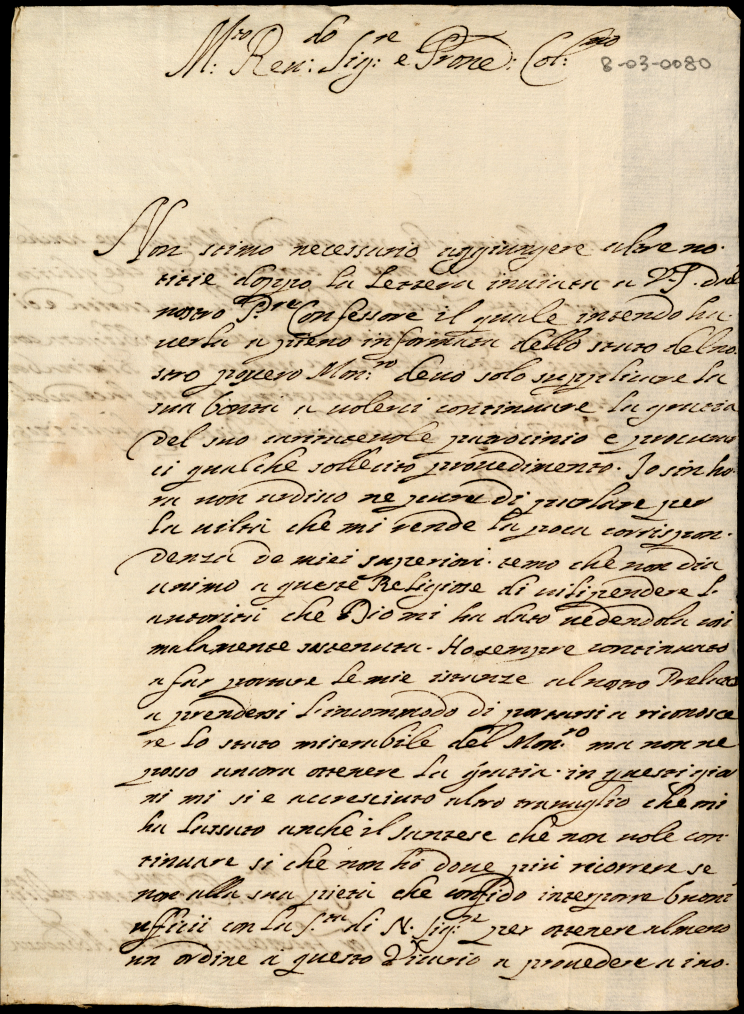 M:to Ren:do Sig:re e Prone: Col:mo
8-03-0080
Non stimo necessario aggiungere altre no.
titie doppo la Lettera inviata a VS. dal
nostro P.re Confessore il quale intendo ha-
verla a pieno informata dello stato del no.
stro povero Mon:ro devo solo supplicare la
sua bontà a volerci continuare la gratia
del suo caritatevole patrocinio e procurar
ci qualche sollecito provedimento. Io sin ho.
ra non ardisco ne pure di parlare per
la viltà che mi rende la poca corrispon.
denza de miei superiori. temo che non dia
animo a queste Religiose di vilipendere l.
autorità che Dio mi ha dato vedendola così
malamente sostenuta. Ho sempre continuato
a far portare le mie istanze al nostro Prelato
a prendersi l'incommodo di portarsi a riconosce
re lo stato miserabile del Mon:ro ma non ne
posso ancora ottenere la gratia. in questi gior
ni mi si e accresciuto altro travaglio che mi
ha lassato anche il santese che non vole con
tinuare si che non ho dove più ricorrere se
non alla sua pietà che confido interporre buoni
ufficii con la S.tà di N. Sig:re per ottenere almeno
un ordine a questo Vicario a provedere a ino.